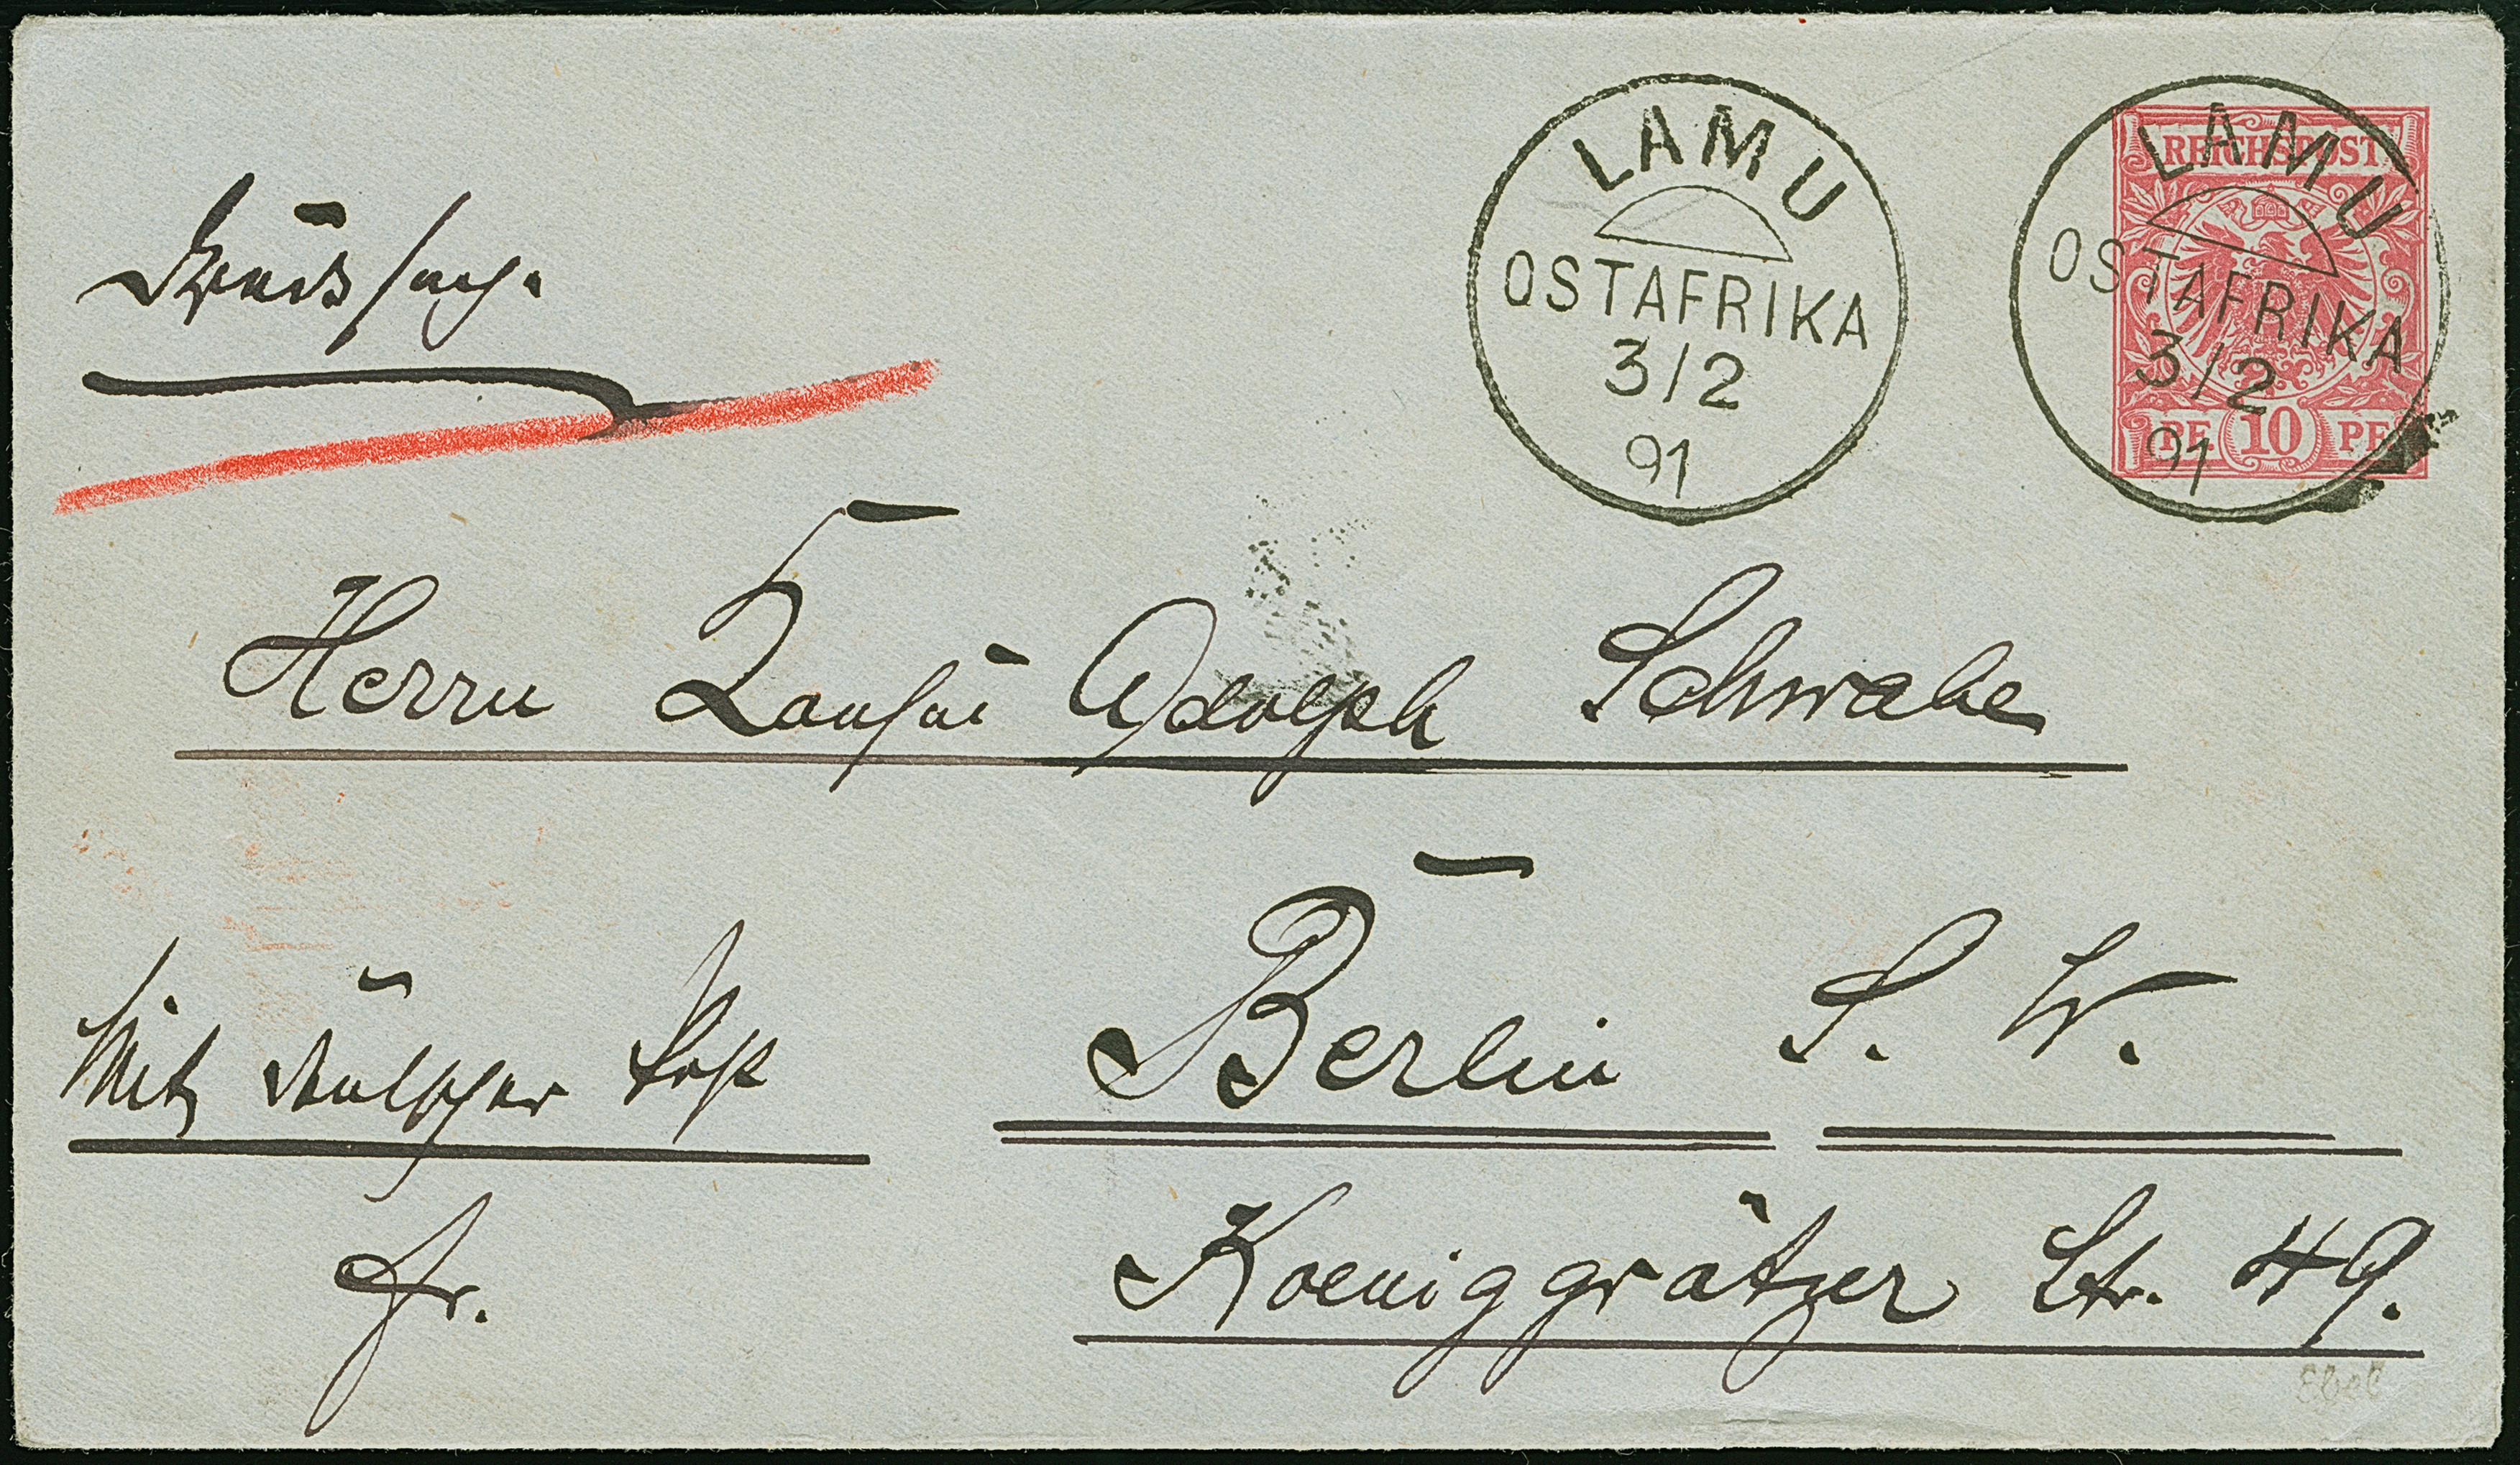 LAMU
OSTAFRIKA
3/2
91
LAMU
OSTAFRIKA
3/2
91
REICHSPOST
PF 10 PF
Drucksach.
Herrn Consul Adolph Schwabe
Berlin S. W.
Mit deutscher Post
fr.
Koeniggrätzer Str. 49.